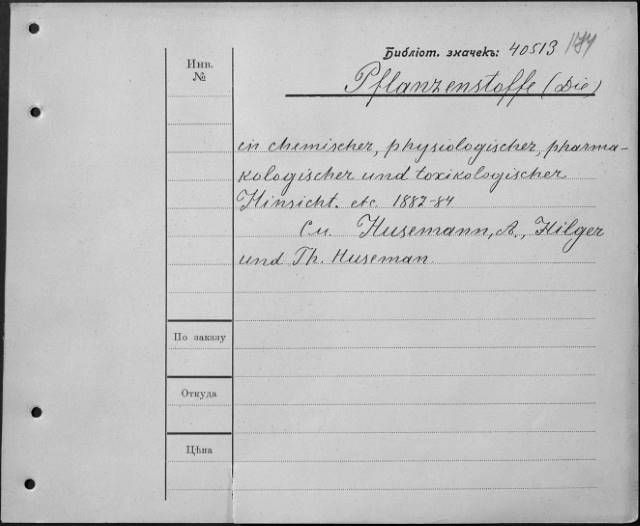 Библіот. значекъ: 40513
Инв.
№
Pflanzenstoffe (Die)
in chemischer, physiologischer, pharma-
kologischer und toxikologischer
Hinsicht. etc. 1882-84
См. Husemann, A., Hilger
und Th. Huseman.
По заказу
Откуда
Цѣна